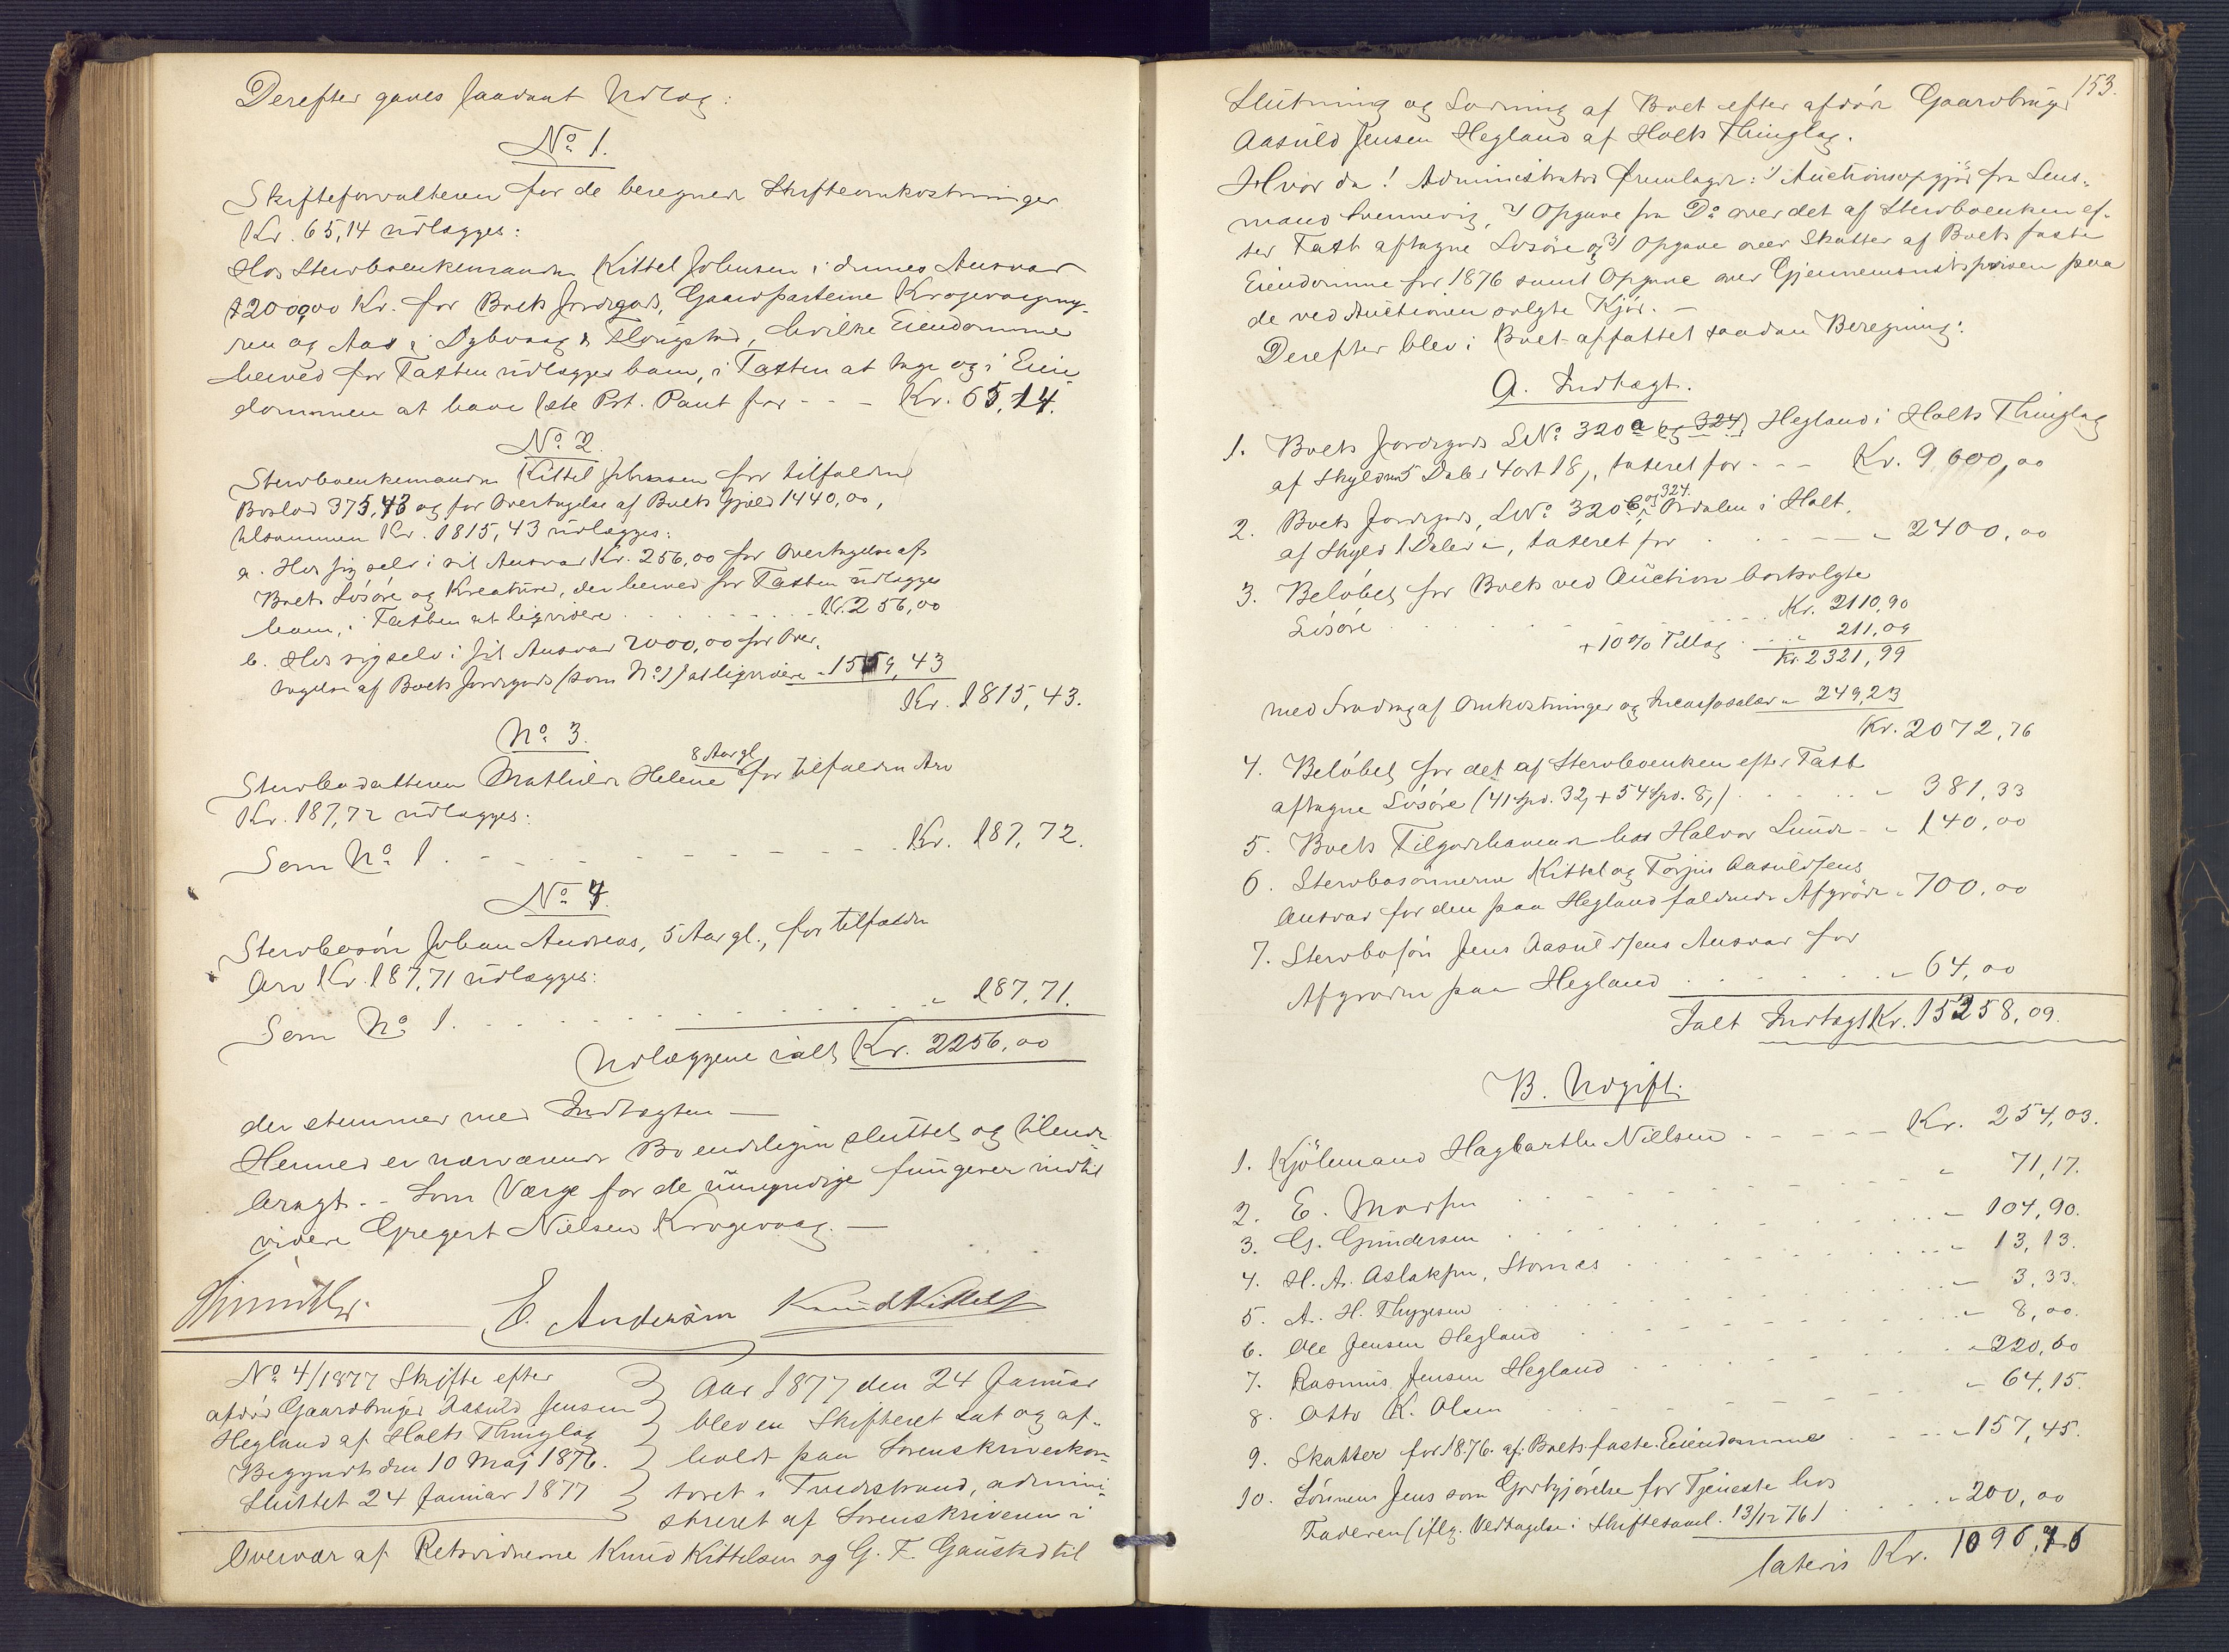 Derefter gaves saadant Udlæg:
No 1.
Skifteforvalteren for de beregnede Skifteomkostninger
Kr. 65,14 udlægges:
Hos Stervboenkemanden Kittel Johnsen i dennes Ansvar
2000,00 Kr. for Boets Jordegods, Gaardparterne Krogevaagmy-
ren og Aas i Dybvaag & Flougstad, hvilke Eiendomme
herved for Taxten udlægges ham, i Taxten at tage og i Eien-
dommen at have 1ste Prt. Pant for - - - Kr. 65,14.
No 2.
Stervboenkemanden Kittel Johnsen for tilfalden
Boslod 375,43 og for Overtagelse af Boets Gjæld 1440,00,
tilsammen Kr. 1815,43 udlægges:
a. Hos sig selv i sit Ansvar Kr. 256,00 for Overtagelse af
Boets Løsøre og Kreature, der herved for Taxten udlægges
ham, i Taxten at liqvidere . . . . Kr. 256,00
b. Hos sig selv i sit Ansvar 2000,00 for Over-
tagelse af Boets Jordegods (som No 1) at liqvidere " 1559,43
Kr. 1815,43.
No 3.
Stervbodatteren Mathilde Helene 8 Aar gl. for tilfalden Arv
Kr. 187,72 udlægges:
Som No 1 . - - - - - - Kr. 187,72.
No 4.
Stervbosøn Johan Andreas, 5 Aar gl., for tilfalden
Arv Kr. 187,71 udlægges:
Som No 1. . . . . . . " 187,71.
Udlæggene ialt Kr. 2256,00
der stemmer med Indtægten —
Hermed er nærværende Bo endeligen sluttet og tilende-
bragt. - Som Værge for de umyndige fungerer indtil
videre Gregert Nielsen Krogevaag. —
E. Andersen Knud Kittelsen
No 4/1877 Skifte efter
afdøde Gaardbruger Aasuld Jensen
Hegland af Holts Thinglag
Begyndt den 10 Maj 1876.
Sluttet 24 Januar 1877
Aar 1877 den 24 Januar
blev en Skifteret sat og af-
holdt paa Sorenskriverkon-
toret i Tvedestrand, admini-
streret af Sorenskriveren i
Overvær af Retsvidnerne Knud Kittelsen og G. F. Gaustad til
153.
Slutning og Lodning af Boet efter afdøde Gaardbruger
Aasuld Jensen Hegland af Holts Thinglag.
Hvor da! Administrator fremlagde: 1) Auctionsopgjør fra Lens-
mand Svennevig, 2) Opgave fra Do over det af Stervboenken ef-
ter Taxt aftagne Løsøre og 3) Opgave over Skatter af Boets faste
Eiendomme for 1876 samt Opgave over Gjennemsnitsprisen paa
de ved Auctionen solgte Kjør. —
Derefter blev i Boet affattet saadan Beregning:
A. Indtægt.
1. Boets Jordegods LNo 320a (og 324) Hegland i Holts Thinglag
af Skyldm 5 Daler 4 ort 18 s, taxeret for - - - Kr. 9600,00
2. Boets Jordegods, LNo 320b, og 324. Ordalen i Holt,
af Skyld 1 Daler " , taxeret for . . - - " 2400,00
3. Beløbet for Boets ved Auction bortsolgte
Løsøre . . . . . Kr. 2110,90
+ 10% Tillæg . . . " 211,09
Kr. 2321,99
med Fradrag af Omkostninger og Incassosalær " 249,23
Kr. 2072,76
4. Beløbet for det af Stervboenken efter Taxt
aftagne Løsøre (41 Spd. 32 s + 54 Spd. 8 s) . . . . " 381,33
5. Boets Tilgodehavende hos Halvor Lunde - " 140,00
6. Stervbosønnerne Kittel og Torjus Aasuldsens
Ansvar for den paa Hegland faldende Afgrøde " 700,00
7. Stervbosøn Jens Aasuldsens Ansvar for
Afgrøden paa Hegland . . . . . " 64,00
Ialt Indtægt Kr. 15258,09.
B. Udgift.
1. Kjøbmand Hagbarth Nielsen . - - - - Kr. 254,03.
2. E. Madsen . . . . " 71,17.
3. G. Gundersen . . . . " 104,90.
4. H. A. Aslaksen, Stornæs . . . . " 13,13.
5. A. H. Thygesen . . . . " 3,33.
6. Ole Jensen Hegland . . . . " 8,00.
7. Rasmus Jensen Hegland . . . . " 220,60
8. Otto K. Olsen . . . . " 64,15.
9. Skatter for 1876 af Boets faste Eiendomme . . . " 157,45.
10. Sønnen Jens som Godtgjørelse for Tjeneste hos
Faderen (iflg. Vedtagelse i Skiftesaml. 13/12 76) . . . . " 200,00
lateris Kr. 1096,76